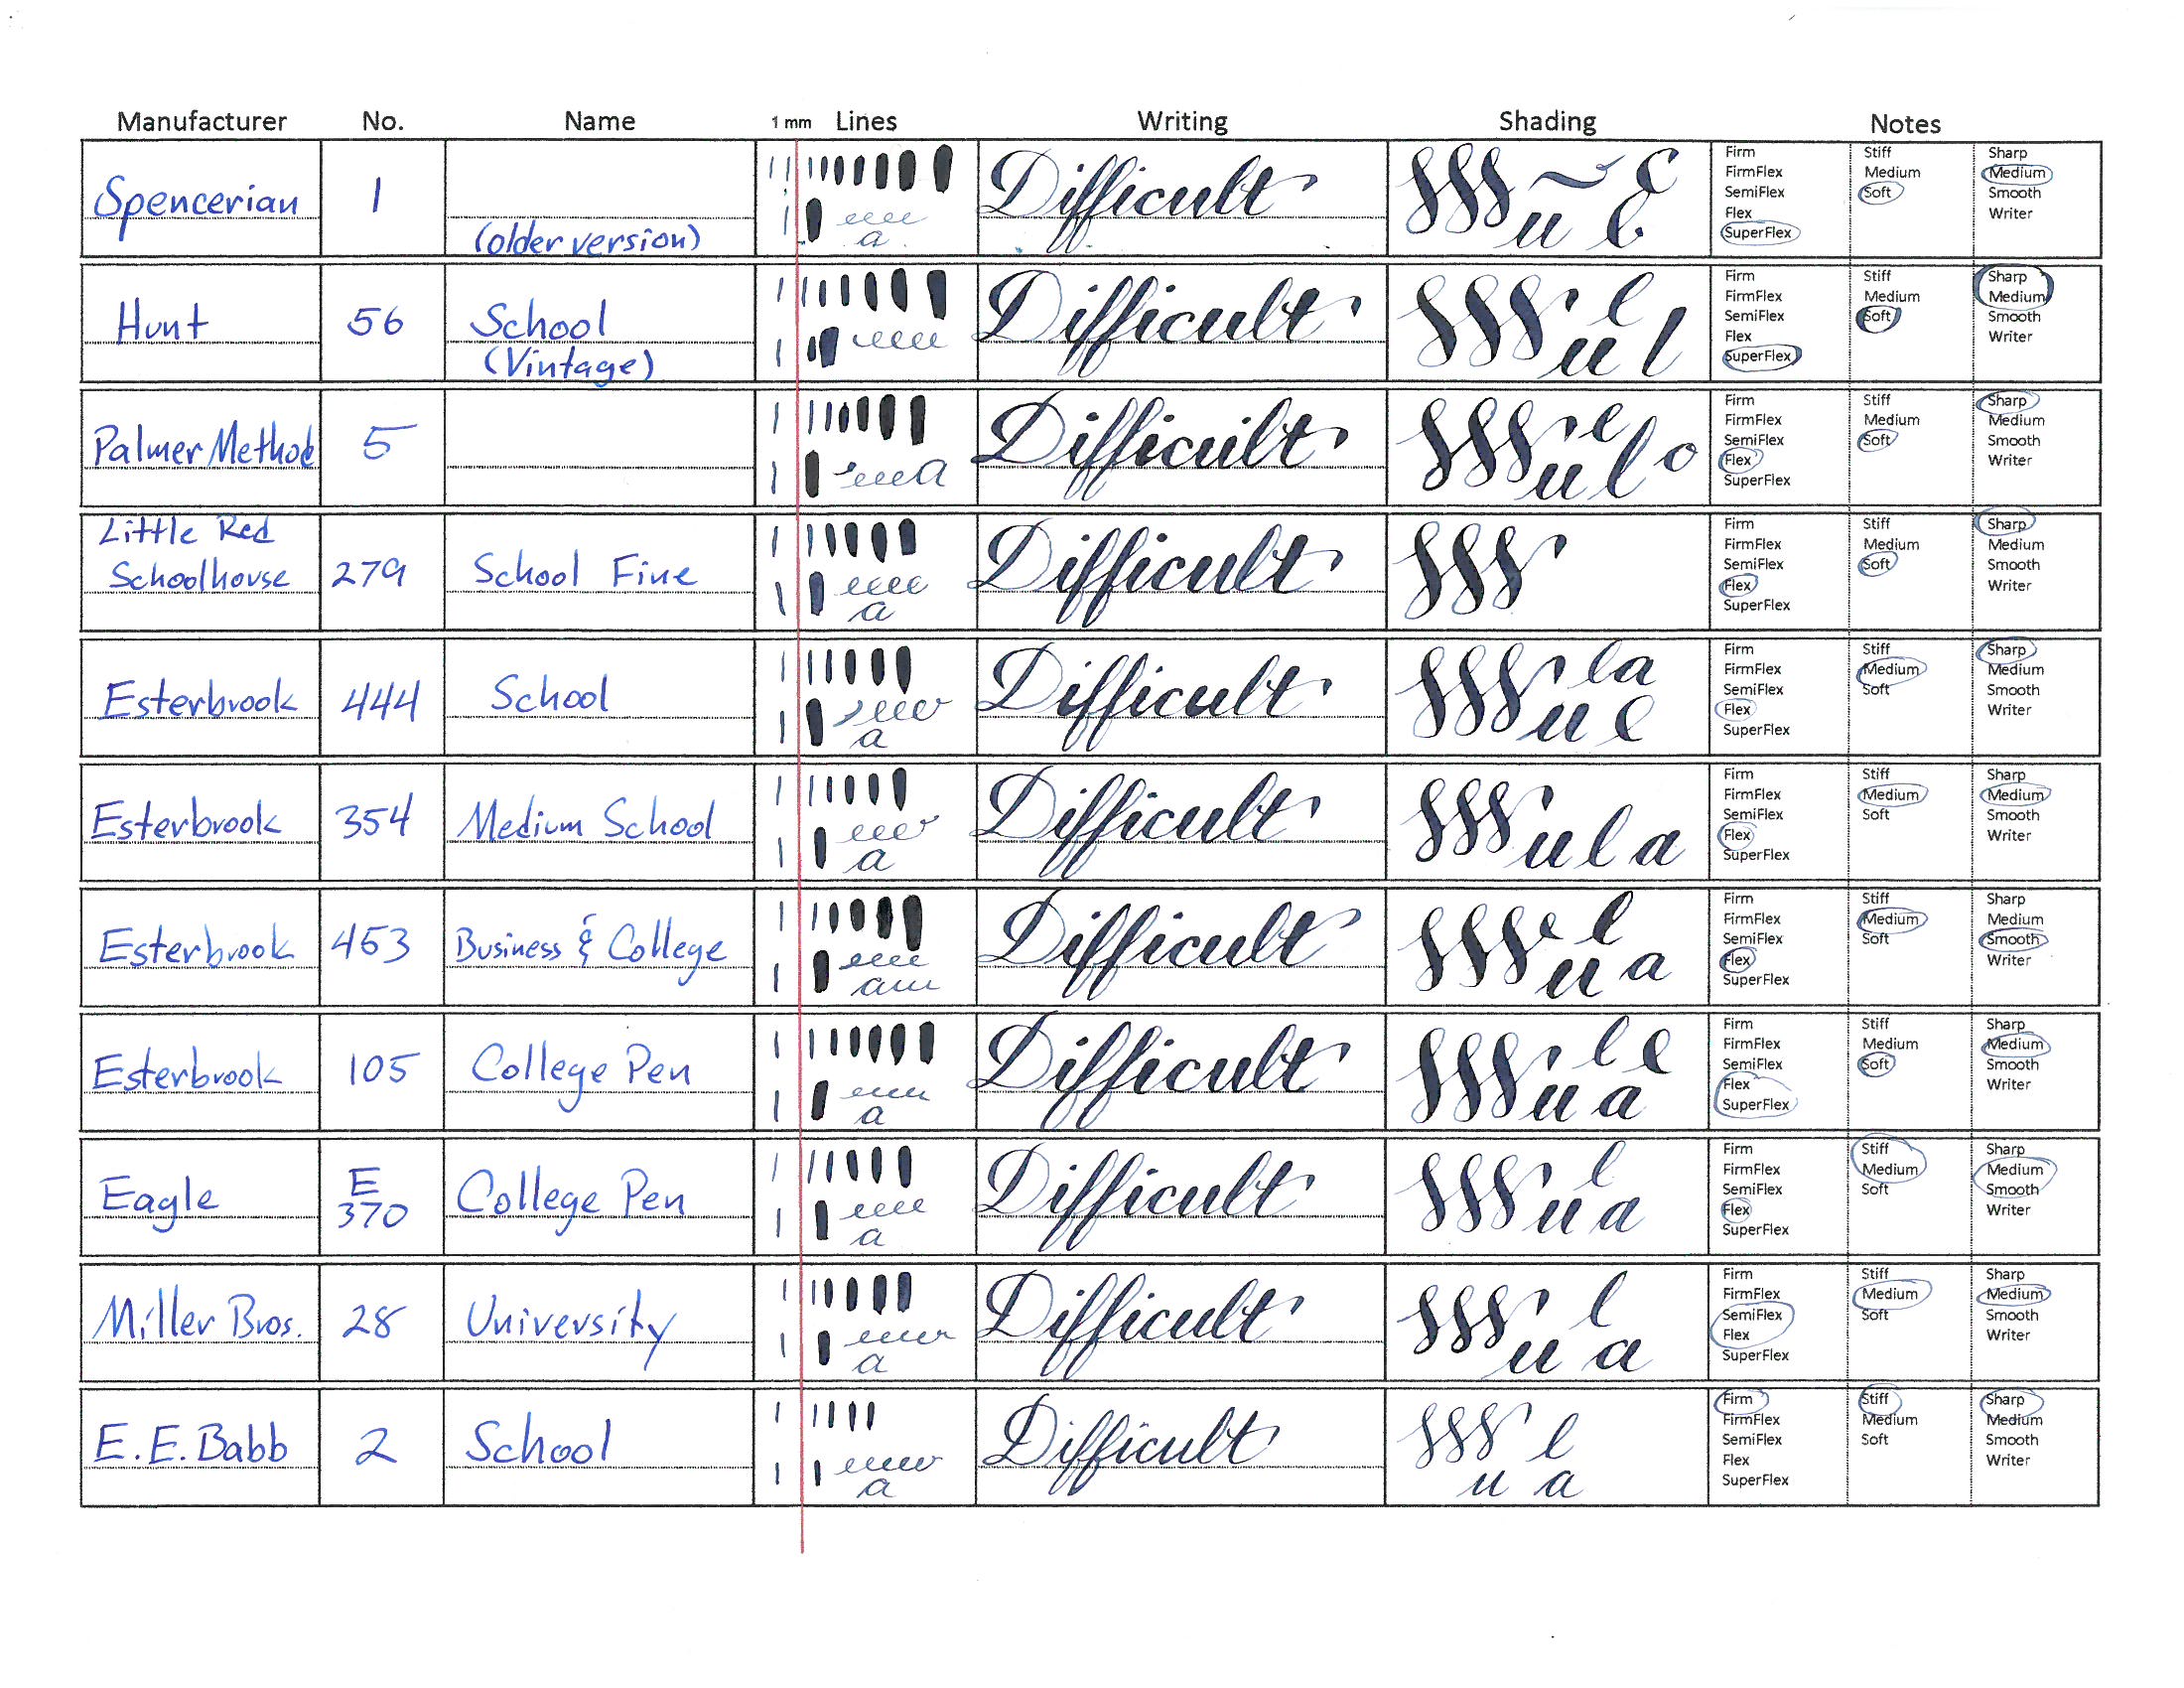 Manufacturer No. Name 1 mm Lines Writing Shading Notes
Spencerian 1 (older version) a Difficult u Firm FirmFlex SemiFlex Flex SuperFlex Stiff Medium Soft Sharp Medium Smooth Writer
Hunt 56 School (Vintage) eeee Difficult e u l Firm FirmFlex SemiFlex Flex SuperFlex Stiff Medium Soft Sharp Medium Smooth Writer
Palmer Method 5 Difficult e u l o Firm FirmFlex SemiFlex Flex SuperFlex Stiff Medium Soft Sharp Medium Smooth Writer
Little Red Schoolhouse 279 School Fine eeee a Difficult Firm FirmFlex SemiFlex Flex SuperFlex Stiff Medium Soft Sharp Medium Smooth Writer
Esterbrook 444 School a Difficult la u e Firm FirmFlex SemiFlex Flex SuperFlex Stiff Medium Soft Sharp Medium Smooth Writer
Esterbrook 354 Medium School a Difficult u l a Firm FirmFlex SemiFlex Flex SuperFlex Stiff Medium Soft Sharp Medium Smooth Writer
Esterbrook 453 Business & College eeee Difficult l u a Firm FirmFlex SemiFlex Flex SuperFlex Stiff Medium Soft Sharp Medium Smooth Writer
Esterbrook 105 College Pen a Difficult l e u a Firm FirmFlex SemiFlex Flex SuperFlex Stiff Medium Soft Sharp Medium Smooth Writer
Eagle E 370 College Pen eeee a Difficult l u a Firm FirmFlex SemiFlex Flex SuperFlex Stiff Medium Soft Sharp Medium Smooth Writer
Miller Bros. 28 University a Difficult l u a Firm FirmFlex SemiFlex Flex SuperFlex Stiff Medium Soft Sharp Medium Smooth Writer
E.E. Babb 2 School a Difficult l u a Firm FirmFlex SemiFlex Flex SuperFlex Stiff Medium Soft Sharp Medium Smooth Writer